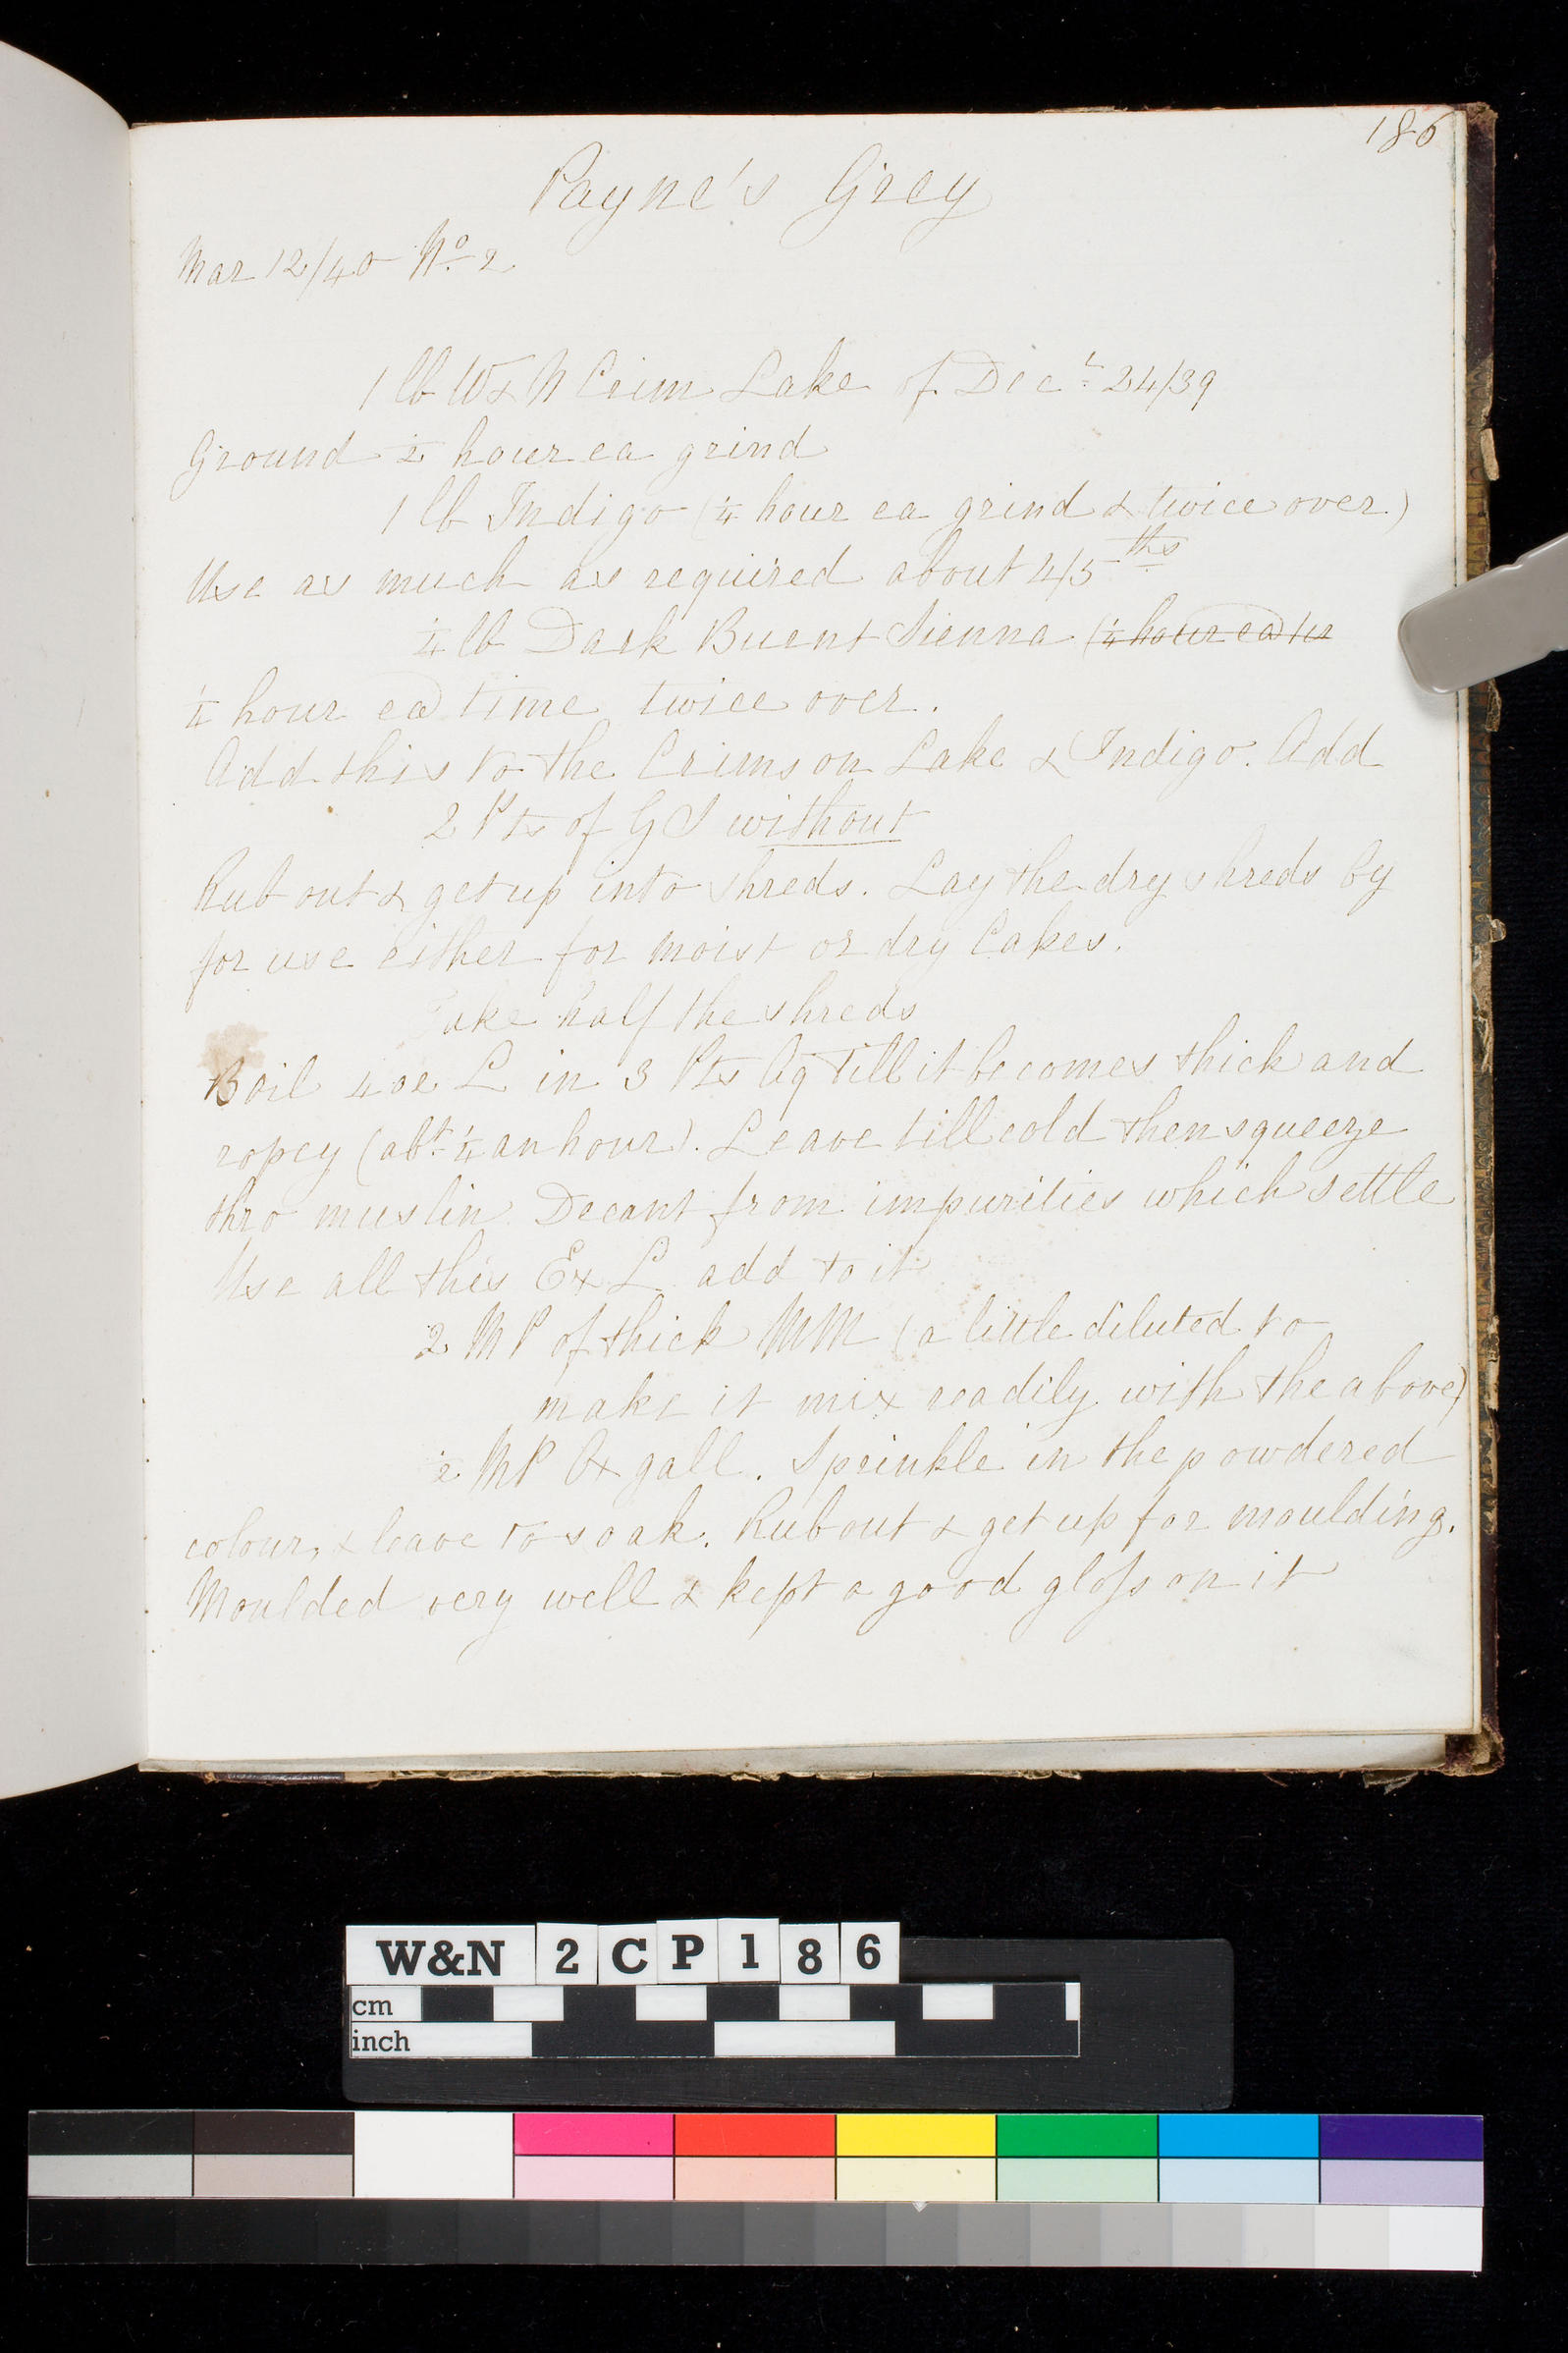 186
Payne's Grey
Mar 12/40 Nº 2
1 lb W & N Crim Lake of Decr 24/39
Ground ½ hour ea grind
1 lb Indigo (¼ hour ea grind & twice over)
Use as much as required about 4/5ths
¼ lb Dark Burnt Sienna (¼ hour ea
¼ hour ea time twice over.
Add this to the Crimson Lake & Indigo. Add
2 Pts of G S without
Rub out & get up into shreds. Lay the dry shreds by
for use either for moist or dry Cakes.
Take half the shreds
Boil 4 oz L in 3 Pts Aq till it becomes thick and
ropey (abt ¼ an hour). Leave till cold then squeeze
thro muslin. Decant from impurities which settle
Use all this Ex L add to it
2 MP of thick MM (a little diluted to
make it mix readily with the above)
½ MP Ox gall. Sprinkle in the powdered
colour, & leave to soak. Rub out & get up for moulding.
Moulded very well & kept a good gloſs on it
W&N 2CP186
cm
inch